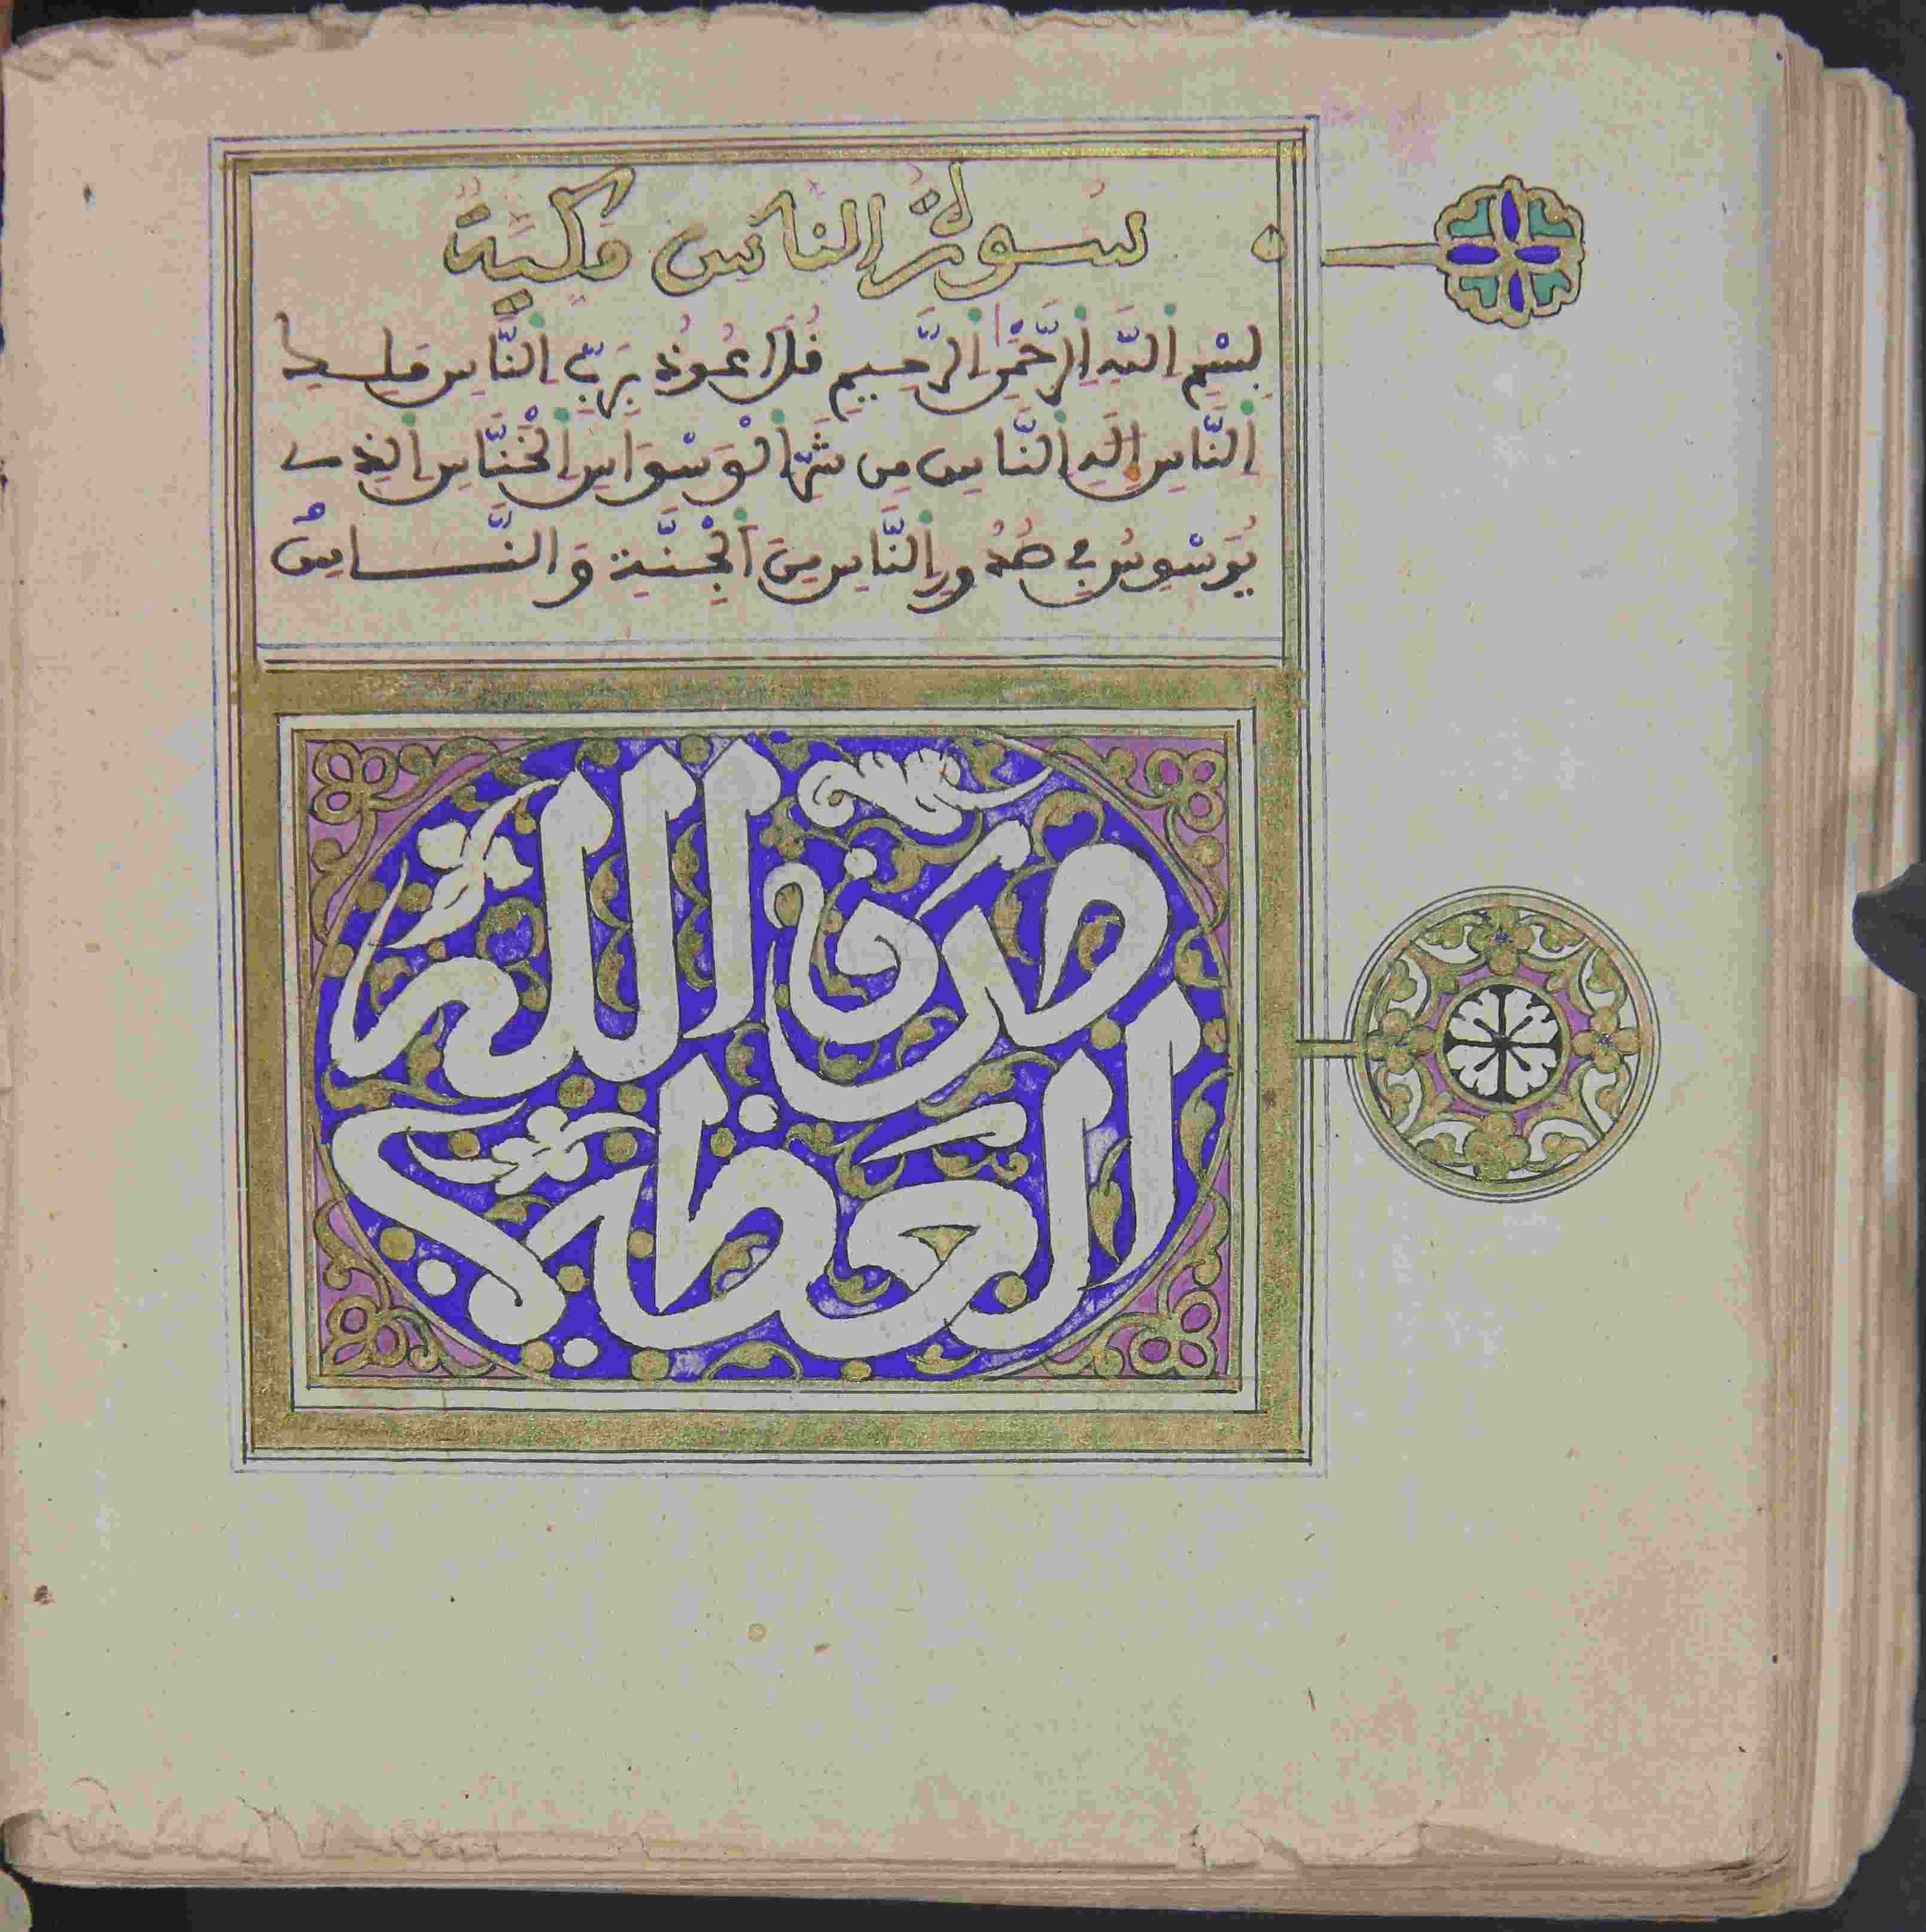 سُورَةُ النَّاسِ مَكِّيَّةٌ
بِسْمِ اللَّهِ الرَّحْمَٰنِ الرَّحِيمِ قُلَ اعُوذُ بِرَبِّ النَّاسِ مَلِكِ
النَّاسِ إِلَٰهِ النَّاسِ مِن شَرِّ الْوَسْوَاسِ الْخَنَّاسِ الَّذِي
يُوَسْوِسُ فِي صُدُورِ النَّاسِ مِنَ الْجِنَّةِ وَالنَّاسِ
صدق الله
العظيم